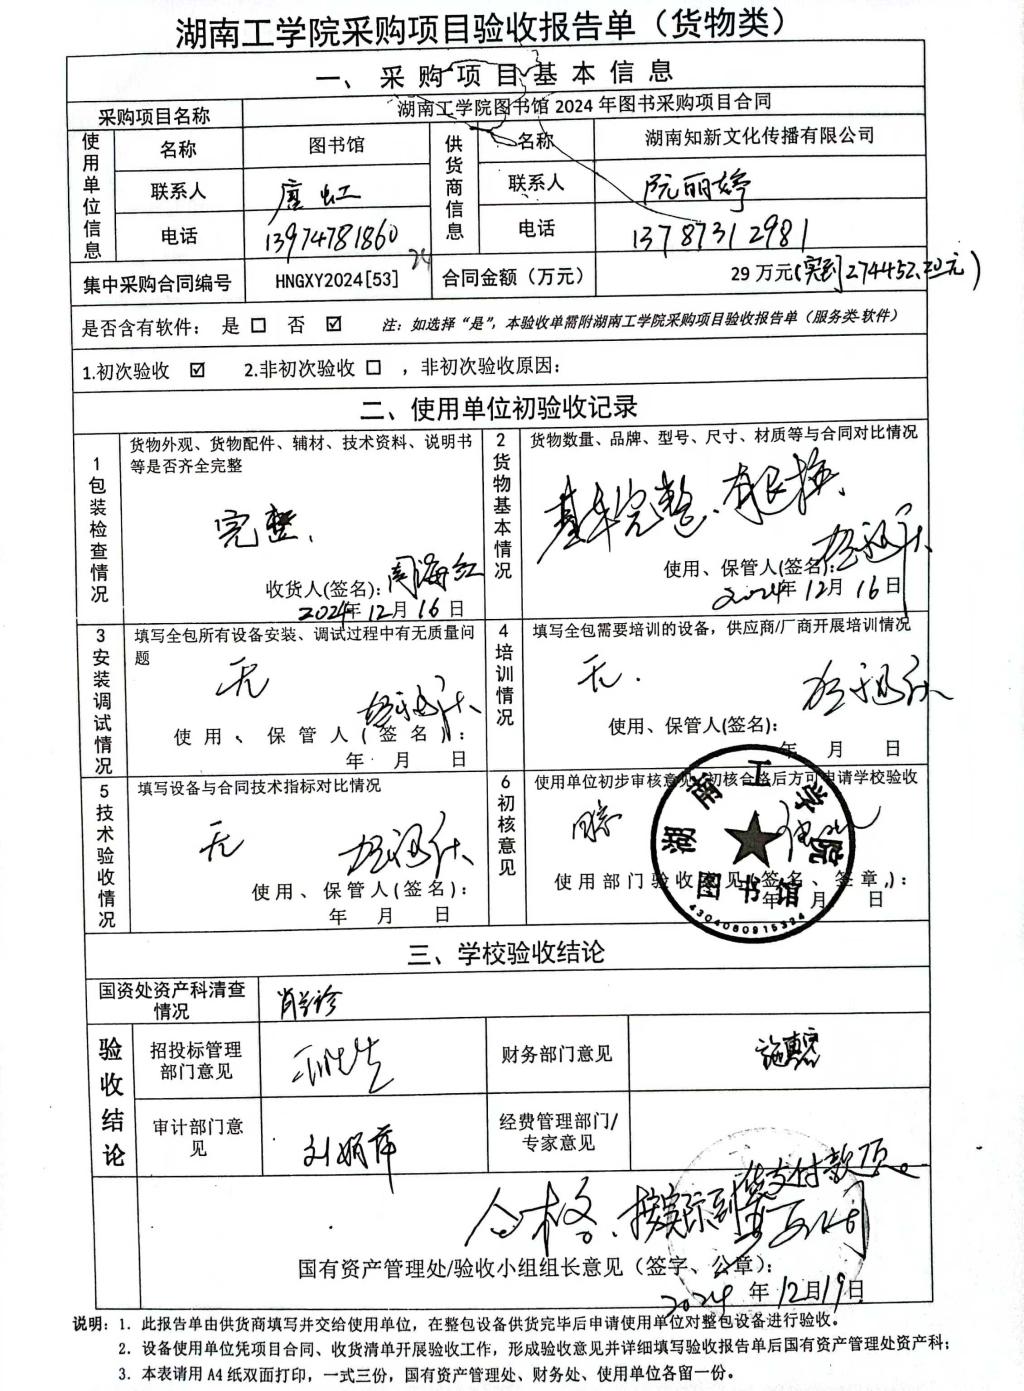 湖南工学院采购项目验收报告单（货物类）
一、采购项目基本信息
采购项目名称 湖南工学院图书馆 2024 年图书采购项目合同
使用单位信息 名称 图书馆 供货商信息 名称 湖南知新文化传播有限公司
联系人 唐虹 联系人 阮丽婷
电话 13974781860 电话 13787312981
集中采购合同编号 HNGXY2024[53] 24 合同金额（万元） 29 万元(实到274452.20元)
是否含有软件： 是 □ 否 ☑ 注：如选择“是”，本验收单需附湖南工学院采购项目验收报告单（服务类-软件）
1.初次验收 ☑ 2.非初次验收 □ ，非初次验收原因：
二、使用单位初验收记录
1包装检查情况
货物外观、货物配件、辅材、技术资料、说明书
等是否齐全完整
完整、
收货人(签名)：周海红
2024年12月16日
2货物基本情况
货物数量、品牌、型号、尺寸、材质等与合同对比情况
基本完整、
使用、保管人(签名)：
2024年12月16日
3安装调试情况
填写全包所有设备安装、调试过程中有无质量问
题
无
使用、保管人(签名)：
年 月 日
4培训情况
填写全包需要培训的设备，供应商/厂商开展培训情况
无.
使用、保管人(签名)：
年 月 日
5技术验收情况
填写设备与合同技术指标对比情况
无
使用、保管人(签名)：
年 月 日
6初核意见
使用单位初步审核意见，初核合格后方可申请学校验收
同意
使用部门验收意见(签名、签章)：
年 月 日
湖南工学院
图书馆
4304080915324
三、学校验收结论
国资处资产科清查
情况
验收结论
招投标管理
部门意见
财务部门意见
审计部门意
见
刘娟萍
经费管理部门/
专家意见
合格、按实际到货支付款项。
国有资产管理处/验收小组组长意见（签字、公章）：
2024年12月19日
说明：1. 此报告单由供货商填写并交给使用单位，在整包设备供货完毕后申请使用单位对整包设备进行验收。
2. 设备使用单位凭项目合同、收货清单开展验收工作，形成验收意见并详细填写验收报告单后国有资产管理处资产科；
3. 本表请用 A4 纸双面打印，一式三份，国有资产管理处、财务处、使用单位各留一份。